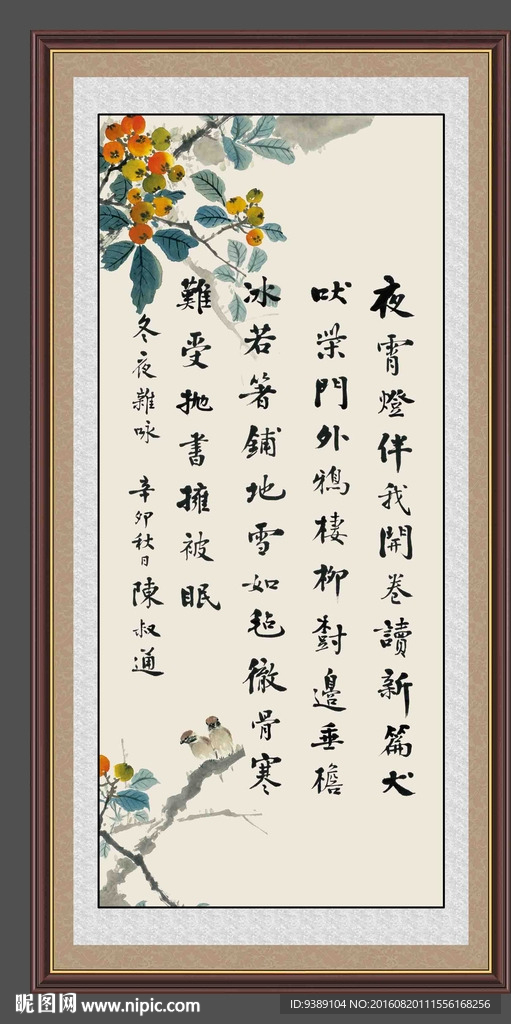 夜霄燈伴我開卷讀新篇犬
吠柴門外鴉棲柳樹邊垂檐
冰若箸鋪地雪如毡徹骨寒
難受抛書擁被眠
冬夜雜咏 辛卯秋日 陳叔通
昵图网 www.nipic.com
ID:9389104 NO:20160820111556168256